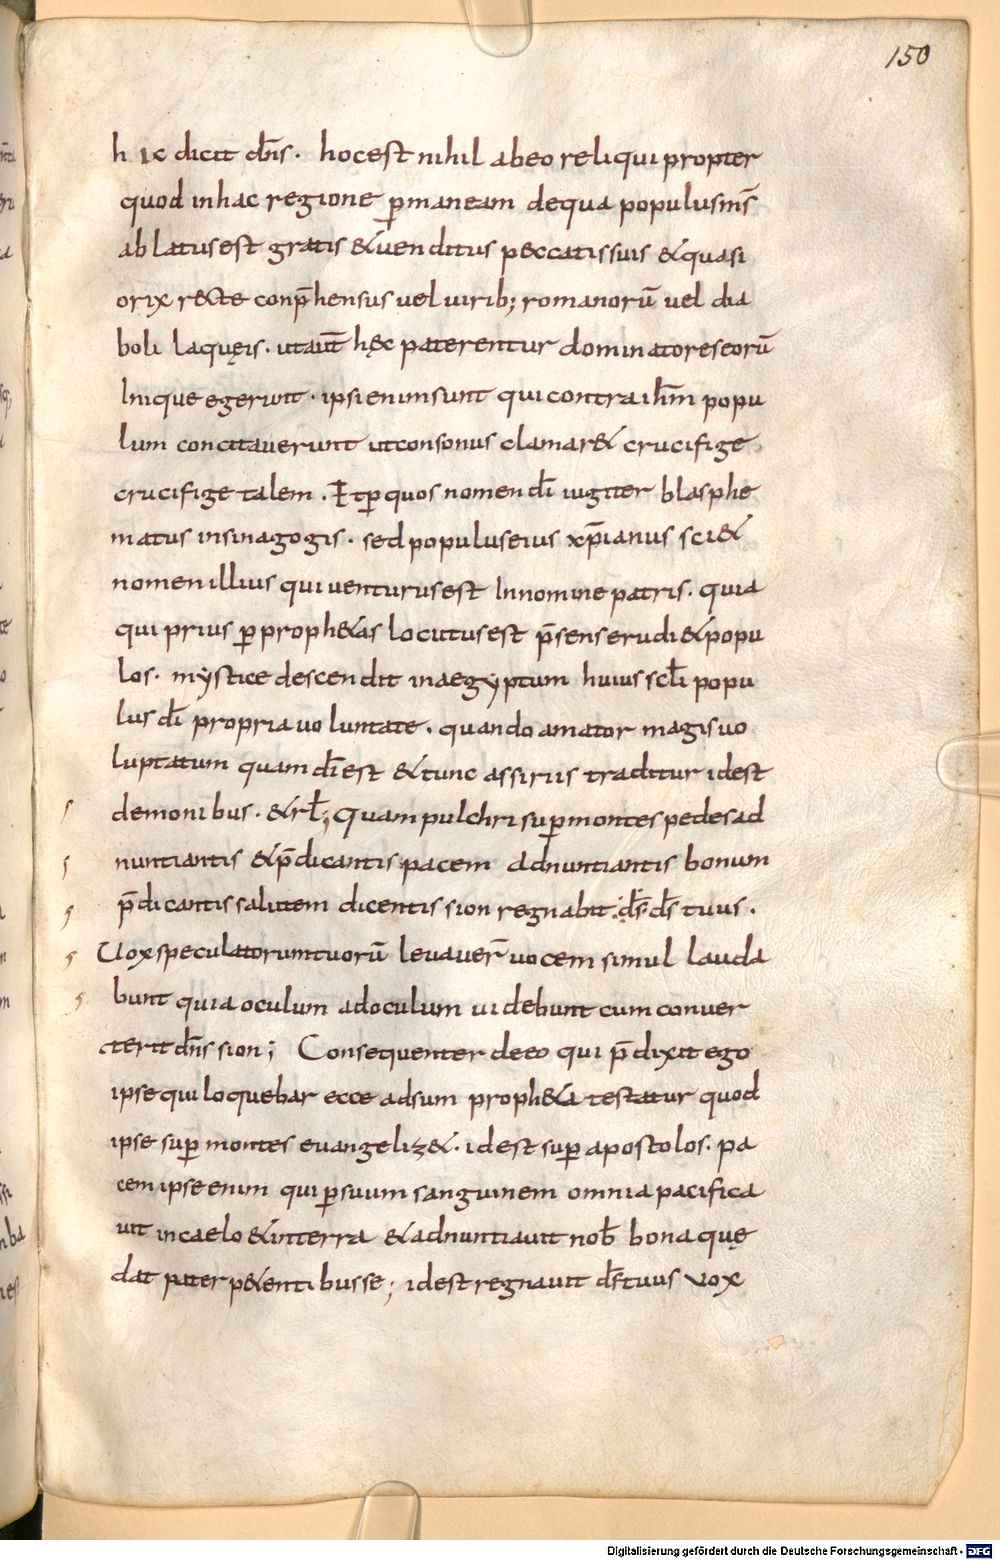 150
hic dicit dn̄s. hoc est nihil ab eo reliqui propter
quod in hac regione ꝑmaneam de qua populus ms̄
ablatus est gratis & uenditus peccatis suis & quasi
orix recte conp̄hensus uel uirib; romanorū uel dia
boli laquęis. ut aut̄ hęc paterentur dominatores eorū
Inique egerunt. ipsi enim sunt qui contra ih̄m popu
lum concitauerunt ut consonus clamar& crucifige
crucifige talem. Et ꝑ quos nomen dī iugiter blasphe
matus in sinagogis. sed populus eius xp̄ianus sci&
nomen illius qui uenturus est In nomine patris. quia
qui prius ꝑ proph&as locutus est p̄sens erudi& popu
los. mystice descendit in aegyptum huius sc̄li popu
lus dī propria uoluntate. quando amator magis uo
luptatum quam dī est & tunc assiriis traditur id est
demonibus. & rl̄; Quam pulchri suꝑ montes pedes ad
nuntiantis & p̄dicantis pacem adnuntiantis bonum
p̄dicantis salutem dicentis sion regnabit ds̄ ds̄ tuus.
Uox speculatorum tuorū leuauer̄ uocem simul lauda
bunt quia oculum ad oculum uidebunt cum conuer
terit dn̄s sion; Consequenter de eo qui p̄dixit ego
ipse qui loquebar ecce adsum proph&a testatur quod
ipse suꝑ montes euangeliz&. id est suꝑ apostolos. pa
cem ipse enim qui ꝑ suum sanguinem omnia pacifica
uit in caelo & in terra & adnuntiauit nob̄ bona quę
dat pater p&entibus se; id est regnauit ds̄ tuus uox
Digitalisierung gefördert durch die Deutsche Forschungsgemeinschaft - DFG